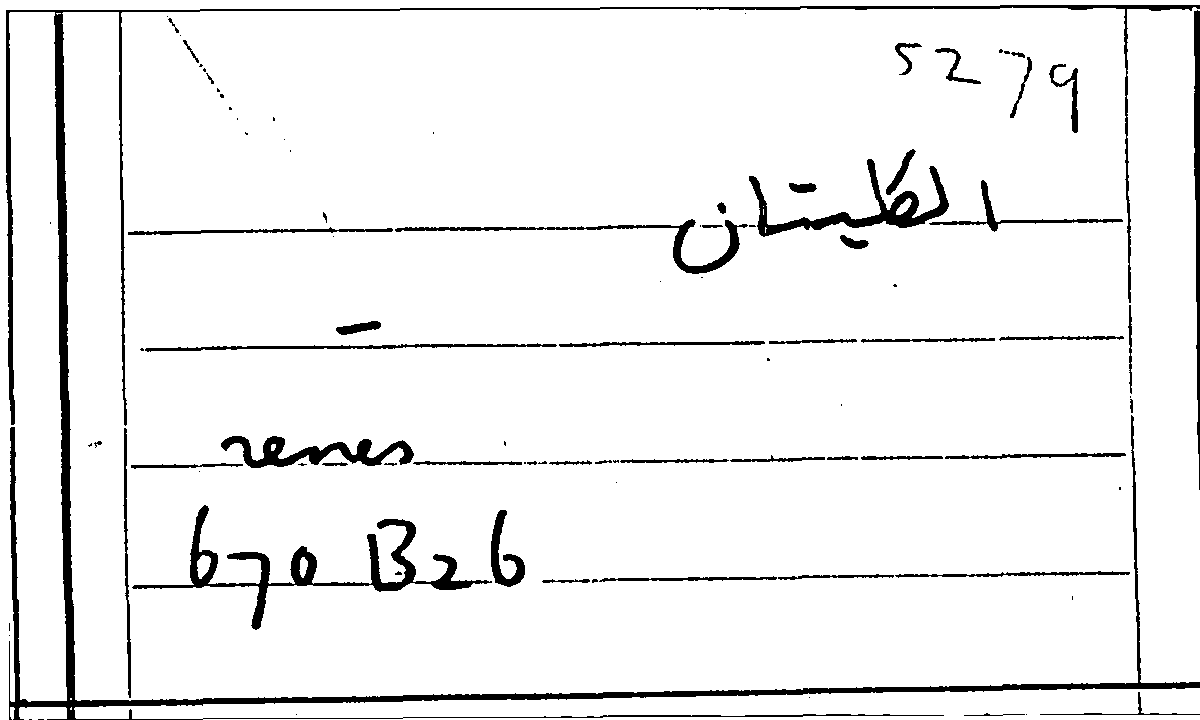 5279
الكليتان
-
renes
670 B26